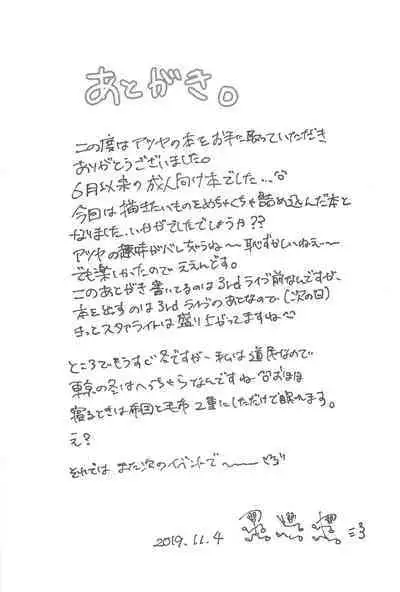 あとがき。
この度はアツヤの本をお手に取っていただき
ありがとうございました。
6月以来の成人向け本でした…
今回は描きたいものをめちゃくちゃ詰め込んだ本と
なりました、いかがでしたでしょうか??
アツヤの趣味がバレちゃうね〜 恥ずかしいねえ〜
でも楽しかったので ええんです。
このあとがき書いてるのは3rdライブ前なんですが、
本を出すのは3rdライブのあとなので (次の日)
きっとスタァライトは盛り上がってますね
ところでもうすぐ冬ですが、私は道民なので
東京の冬はへっちゃらなんですね
寝るときは布団と毛布2重にしただけで眠れます。
え?
それでは また次のイベントで〜
2019.11.4